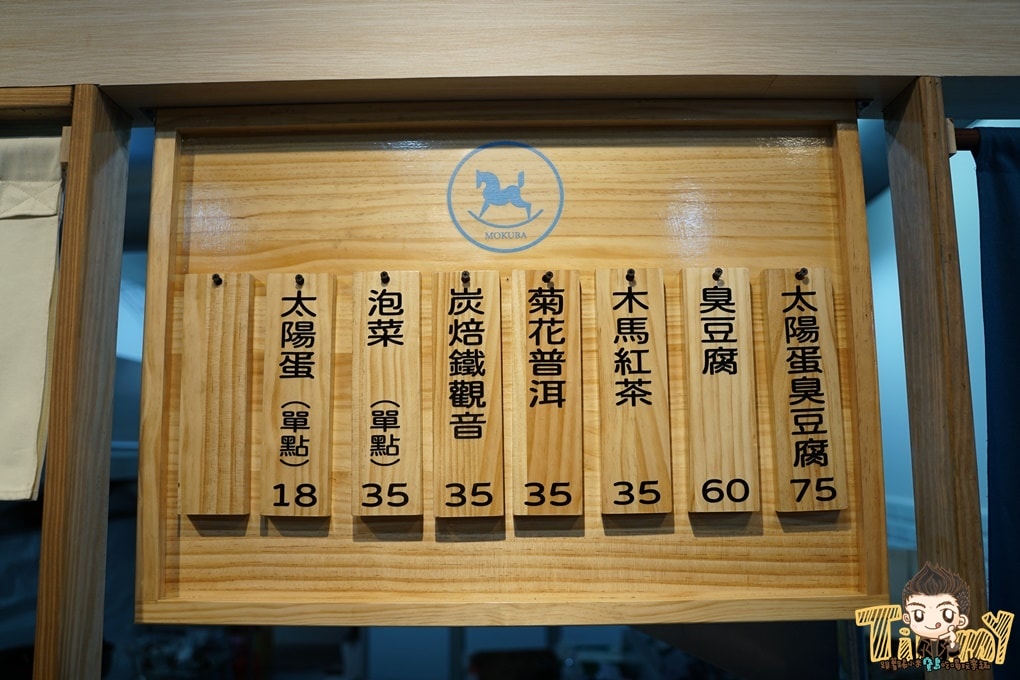 MOKUBA
太陽蛋臭豆腐 75
臭豆腐 60
木馬紅茶 35
菊花普洱 35
炭焙鐵觀音 35
泡菜（單點） 35
太陽蛋（單點） 18